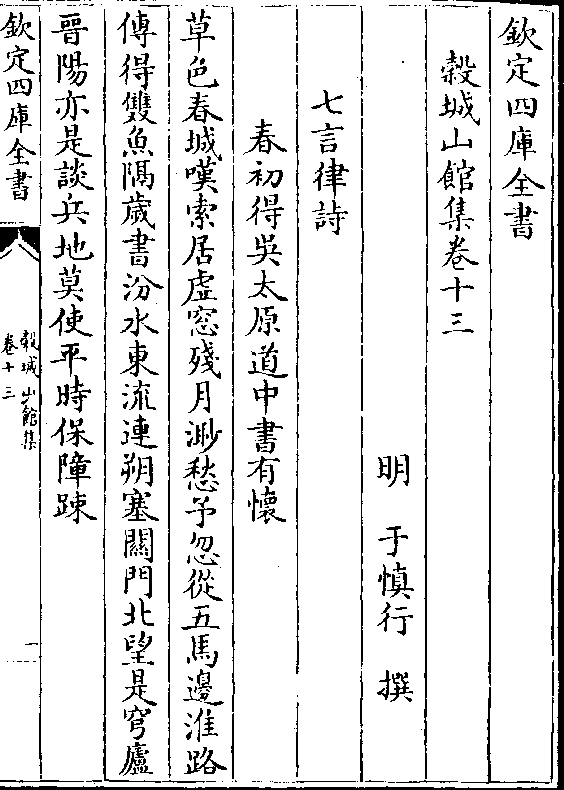 欽定四庫全書
穀城山館集卷十三
明 于慎行 撰
七言律詩
春初得吳太原道中書有懷
草色春城嘆索居虛窓殘月渺愁予忽從五馬邊淮路
傳得雙魚隔歲書汾水東流連朔塞關門北望是穹廬
晉陽亦是談兵地莫使平時保障踈
欽定四庫全書
穀城山館集
卷十三
一